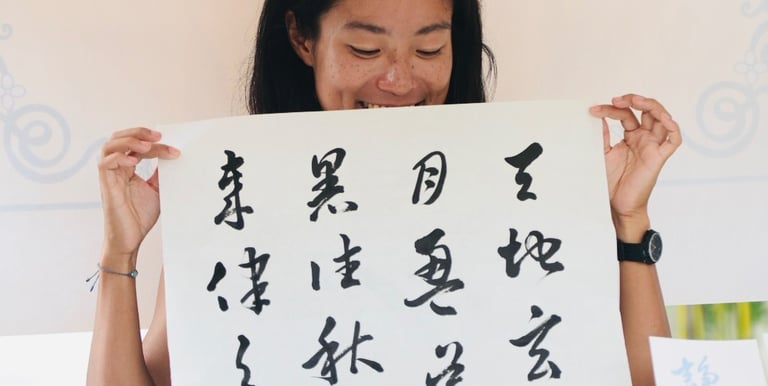 天地玄
月盈
暑往秋
歲律